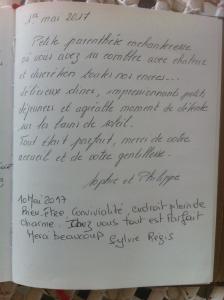 1er mai 2017
Petite parenthèse enchanteresse
où vous avez su combler avec chaleur
et discrétion toutes nos envies...
délicieux dîners, impressionnants petits
déjeuners et agréable moment de détente
sur les bains de soleil.
Tout était parfait, merci de votre
accueil et de votre gentillesse.
Sophie et Philippe
10 Mai 2017
Bien-Être, Convivialité, endroit plein de
Charme. Chez vous tout est Parfait
Merci beaucoup Sylvie Régis